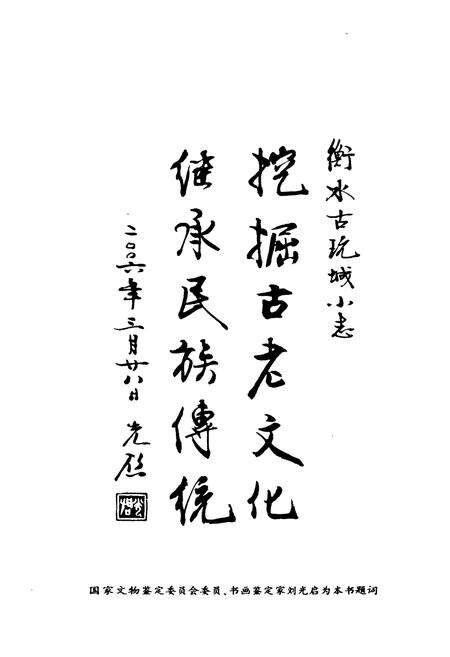 衡水古玩城小志
挖掘古老文化
继承民族傳统
二〇〇六年三月廿八日 光启
国家文物鉴定委员会委员、书画鉴定家刘光启为本书题词